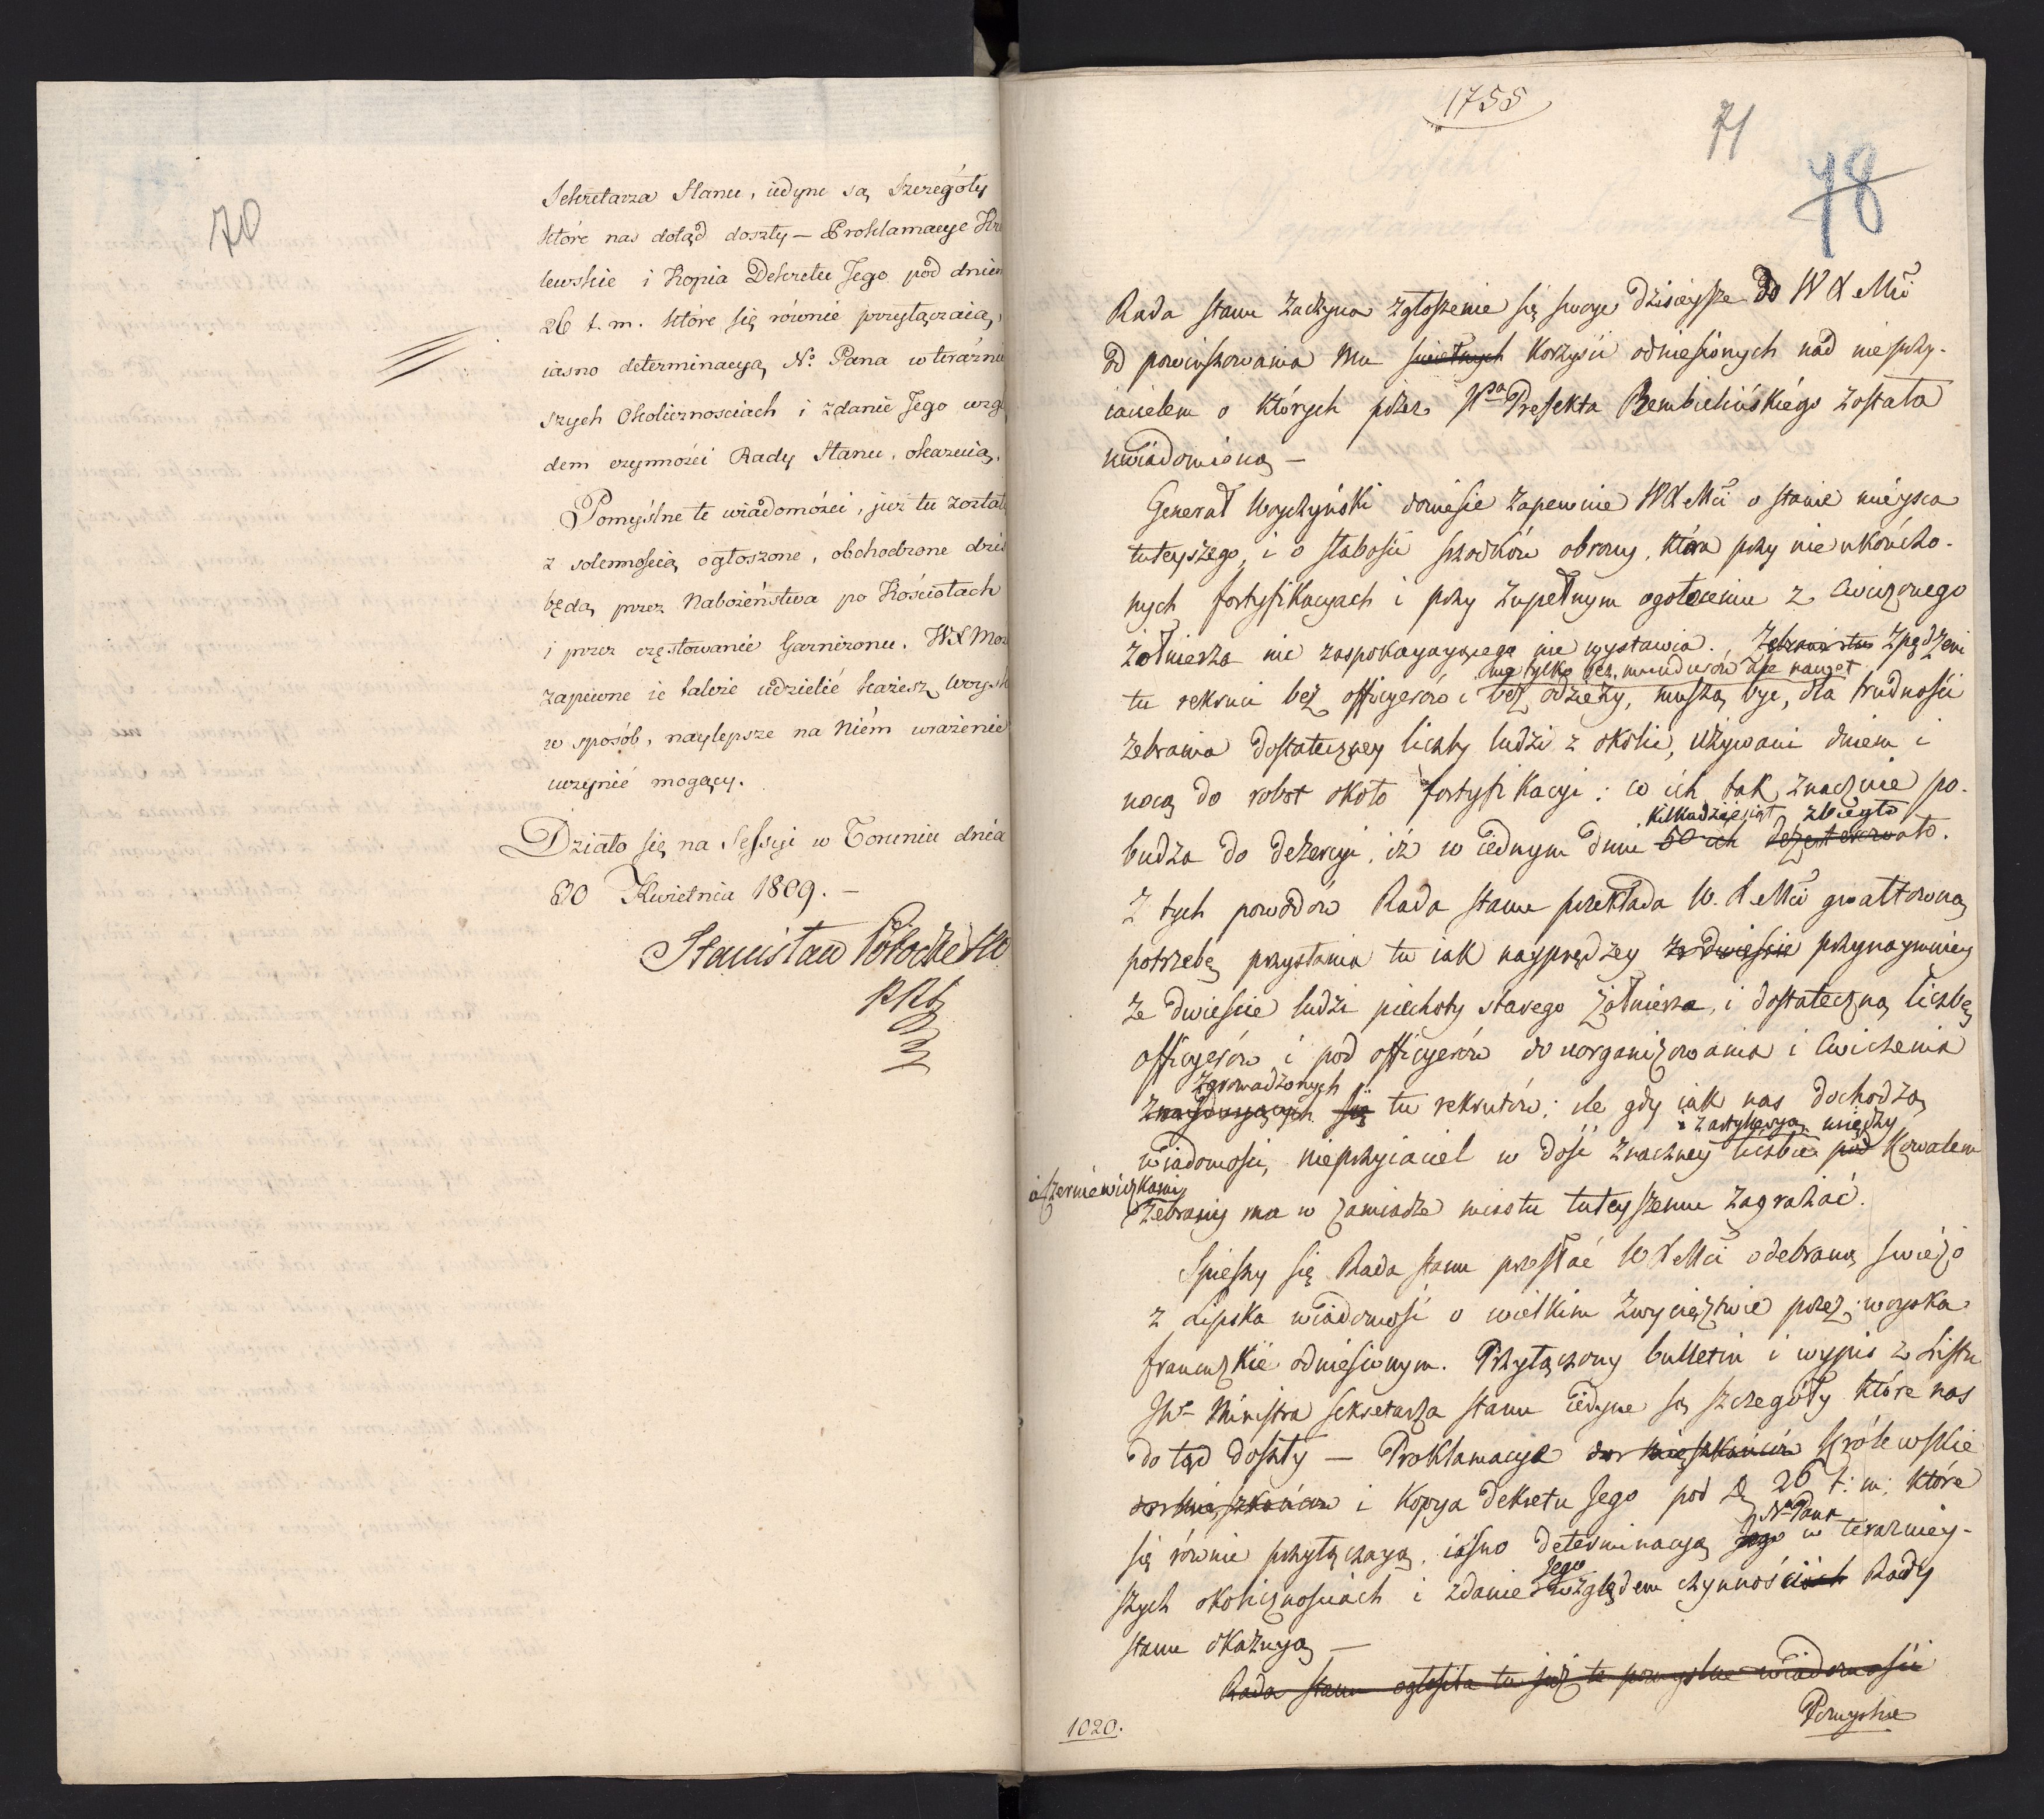 70
Sekretarza Stanu, iedyne są szczegóły
które nas dotąd doszły — Proklamacye Kró
lewskie i Kopia Dekretu Jego pod dniem
26 t. m. które się równie przyłączaią,
iasno determinacyą N.º Pana w teraźniey
szych okolicznosciach i zdanie Jego wzglę
dem czynności Rady Stanu, okazuią.
Pomyślne te wiadomości, już tu zostały
z solennością ogłoszone, obchodzone dziś
będą przez Nabożeństwa po Kościołach
i przez częstowanie Garnizonu. WXMość
zapewne ie także udzielić każesz woysk
w sposób, naylepsze na niém wrażenie
uczynić mogący.
Działo się na Sessyi w Toruniu dnia
30 Kwietnia 1809. —
Stanisław Potocki
1755
71
78
Rada stanu zaczyna zgłoszenie się swoje dzisieysze do WXMci
od powinszowania mu swietnych korzyści odniesionych nad nieprzy-
iacielem o których przez JWgo Prefekta Rembielińskiego została
uwiadomioną —
Generał Woyczyński doniesie zapewnie WXMci o stanie mieysca
tuteyszego, i o słabości szrodków obrony, która przy nieukończo-
nych fortyfikacyach i przy zupełnym ogołoceniu z cwiczonego
żołnierza nic zaspokaiaiącego nie wystawia. Zebrani tu Zpędzeni
nie tylko bez mundurów ale nawet
tu rekruci bez officyerów i bez odzieży, muszą bye, dla trudności
zebrania dostateczney liczby ludzi z okolic, używani dniem i
nocą do robot około fortyfikacyi: co ich tak znacznie po-
kilkadziesiąt zbiegło
budza do dezercyi, iż w iednym dniu 50 ich dezerterowało.
Z tych powodów Rada stanu przekłada W.XMci gwałtowną
potrzebę przysłania tu iak nayprędzey ze dwieście przynaymniey
ze dwieście ludzi piechoty starego żołnierza, i dostateczną liczbę
officyerów i pod officyerów do uorganizowania i cwiczenia
zgromadzonych
znayduiących się tu rekrutów; ile gdy iak nas dochodzą
z artyleryą między
wiadomosci, nieprzyiaciel w dość znaczney liczbie pod Kowalem
i Czerniewiczkami
zebrany ma w zamiarze miastu tuteyszemu zagrażać.
Spieszy się Rada stanu przesłać WXMci odebraną swieżo
z Lipska wiadomość o wielkim zwycięztwie przez woyska
francuzkie odniesionym. Przyłączony bulletin i wypis z Listu
JWo Ministra sekretarza stanu iedyne są szczegóły które nas
do tąd doszły — Proklamacye do mieszkańców Królewskie
do mieszkańców i kopya dekretu Jego pod d. 26 t. m. które
No Pana
się równie przyłączaią, iasno determinacyą Jego w teraźniey-
Jego
szych okolicznościach i zdanie względem czynnościach Rady
stanu okazuią —
Rada stanu ogłosiła tu już te pomyslne wiadomości
Pomyslne
1020.